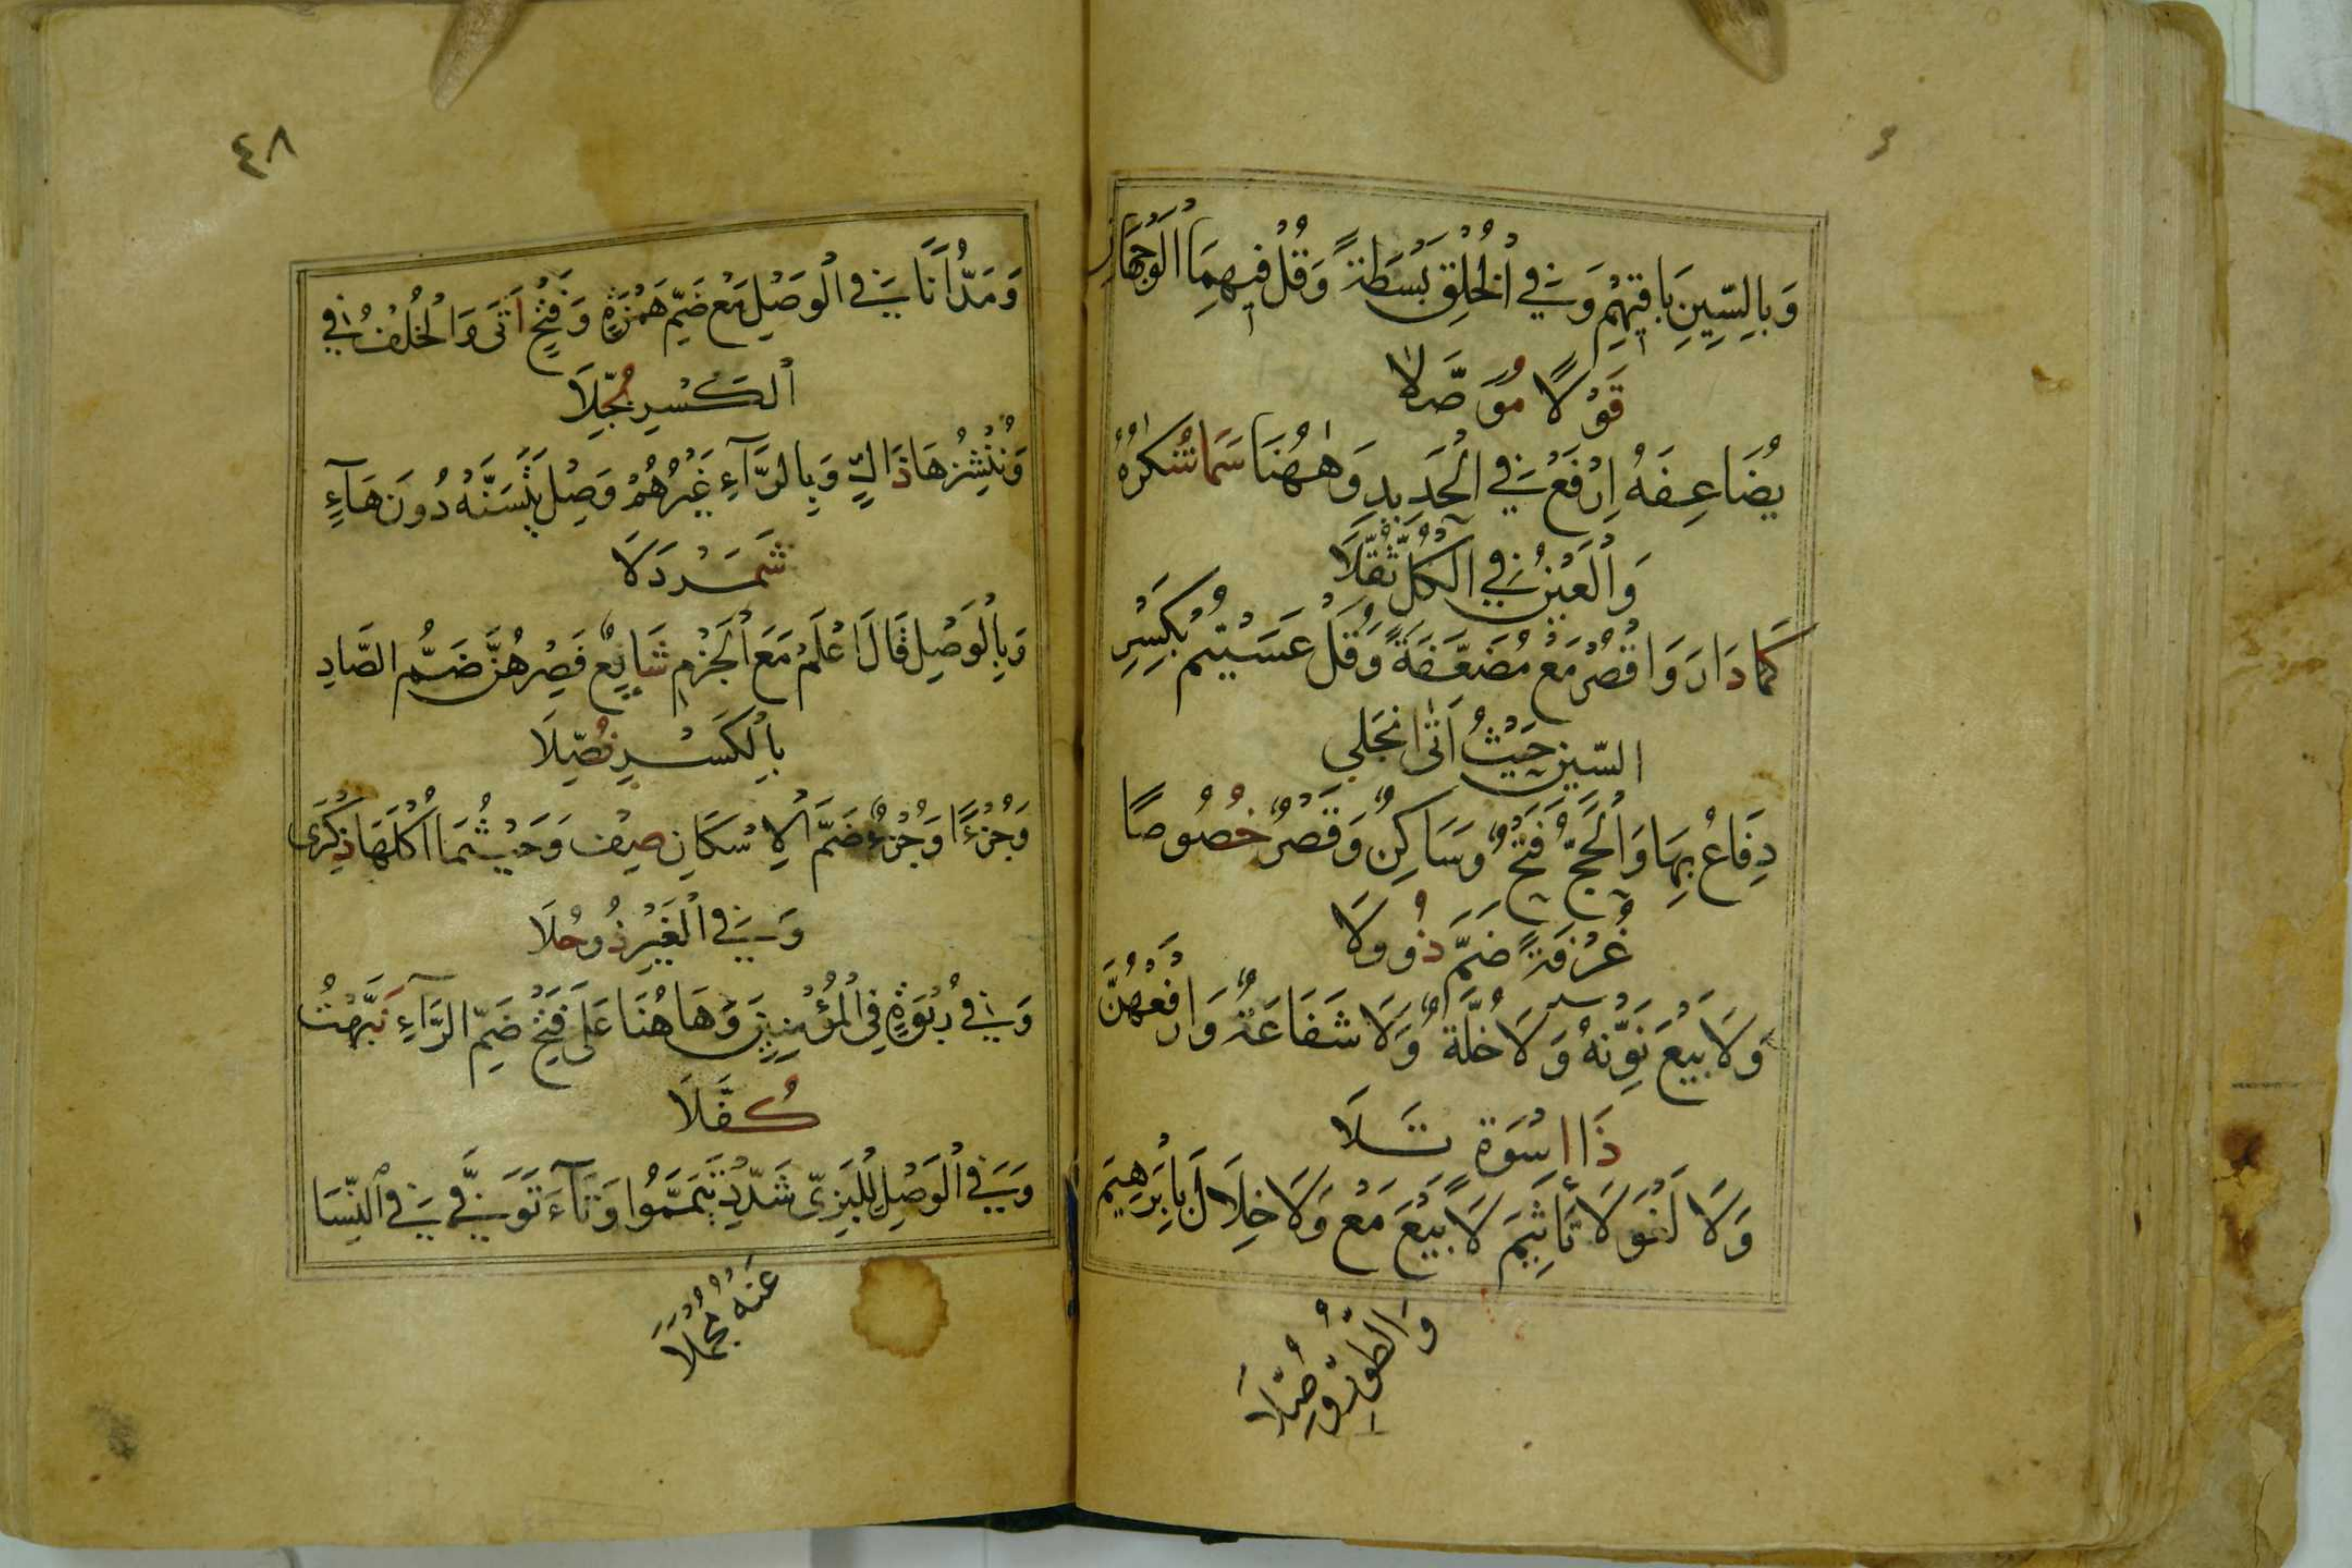 وَبِالسِّينِ بَاقِيهِمْ وَفِي الْخُلْقِ بَسْطَةً وَقُلْ فِيهِمَا الْوَجْهَانِ
قَوْلًا مُوَصَّلَا
يُضَاعِفَهُ اِرْفَعْ فِي الْحَدِيدِ وَهٰهُنَا سَمَا شُكْرُهُ
وَالْعَيْنُ فِي الْكُلِّ ثُقِّلَا
كَمَا دَارَ وَاقْصُرْ مَعْ مُضَعَّفَةً وَقُلْ عَسَيْتُمْ بِكَسْرِ
السّينِ حَيْثُ اَتٰى انْجَلِي
دِفَاعُ بِهَا وَالْحَجِّ فَتْحٌ وَسَاكِنٌ وَقَصْرٌ خُصُوصًا
غُرْفَةً ضَمَّ ذُو وِلَا
وَلَا بَيْعَ نَوِّنْهُ وَلَا خُلَّةٌ وَلَا شَفَاعَةٌ وَارْفَعْهُنَّ
ذَا اسْوَةٍ تَلَا
وَلَا لَغْوَ لَا تَأْثِيمَ لَا بَيْعَ مَعْ وَلَا خِلَالَ بِاِبْرَهِيمَ
وَالطُّورِ وُصِّلَا
٤٨
وَمَدُّ اَنَا فِي الْوَصْلِ مَعْ ضَمِّ هَمْزَةٍ وَفَتْحٍ اَتَى وَالْخُلْفُ فِي
الْكَسْرِ بُجِّلَا
وَنُنْشِزُهَا ذَاكٍ وَبِالرَّآءِ غَيْرُهُمْ وَصِلْ يَتَسَنَّهْ دُونَ هَآءٍ
شَمَرْدَلَا
وَبِالْوَصْلِ قَالَ اعْلَمْ مَعَ الْجَزْمِ شَايِعٌ فَصِرْهُنَّ ضَمُّ الصَّادِ
بِالْكَسْرِ فُصِّلَا
وَجُزْءًا وَجُزْءٌ ضَمَّ الْاِسْكَانِ صِفْ وَحَيْثُمَا اُكْلُهَا ذِكْرَى
وَفِي الْغَيْرِ ذُو حُلَا
وَفِي رُبْوَةٍ فِي الْمُؤْمِنِينَ وَهَاهُنَا عَلَى فَتْحِ ضَمِّ الرَّآءِ نَبَّهْتُ
كُفَّلَا
وَفِي الْوَصْلِ لِلْبَزِّىّ شَدِّدْ تَيَمَّمُوا وَتَآءَ تَوَفَّى فِي النِّسَا
عَنْهُ مُجْمِلَا